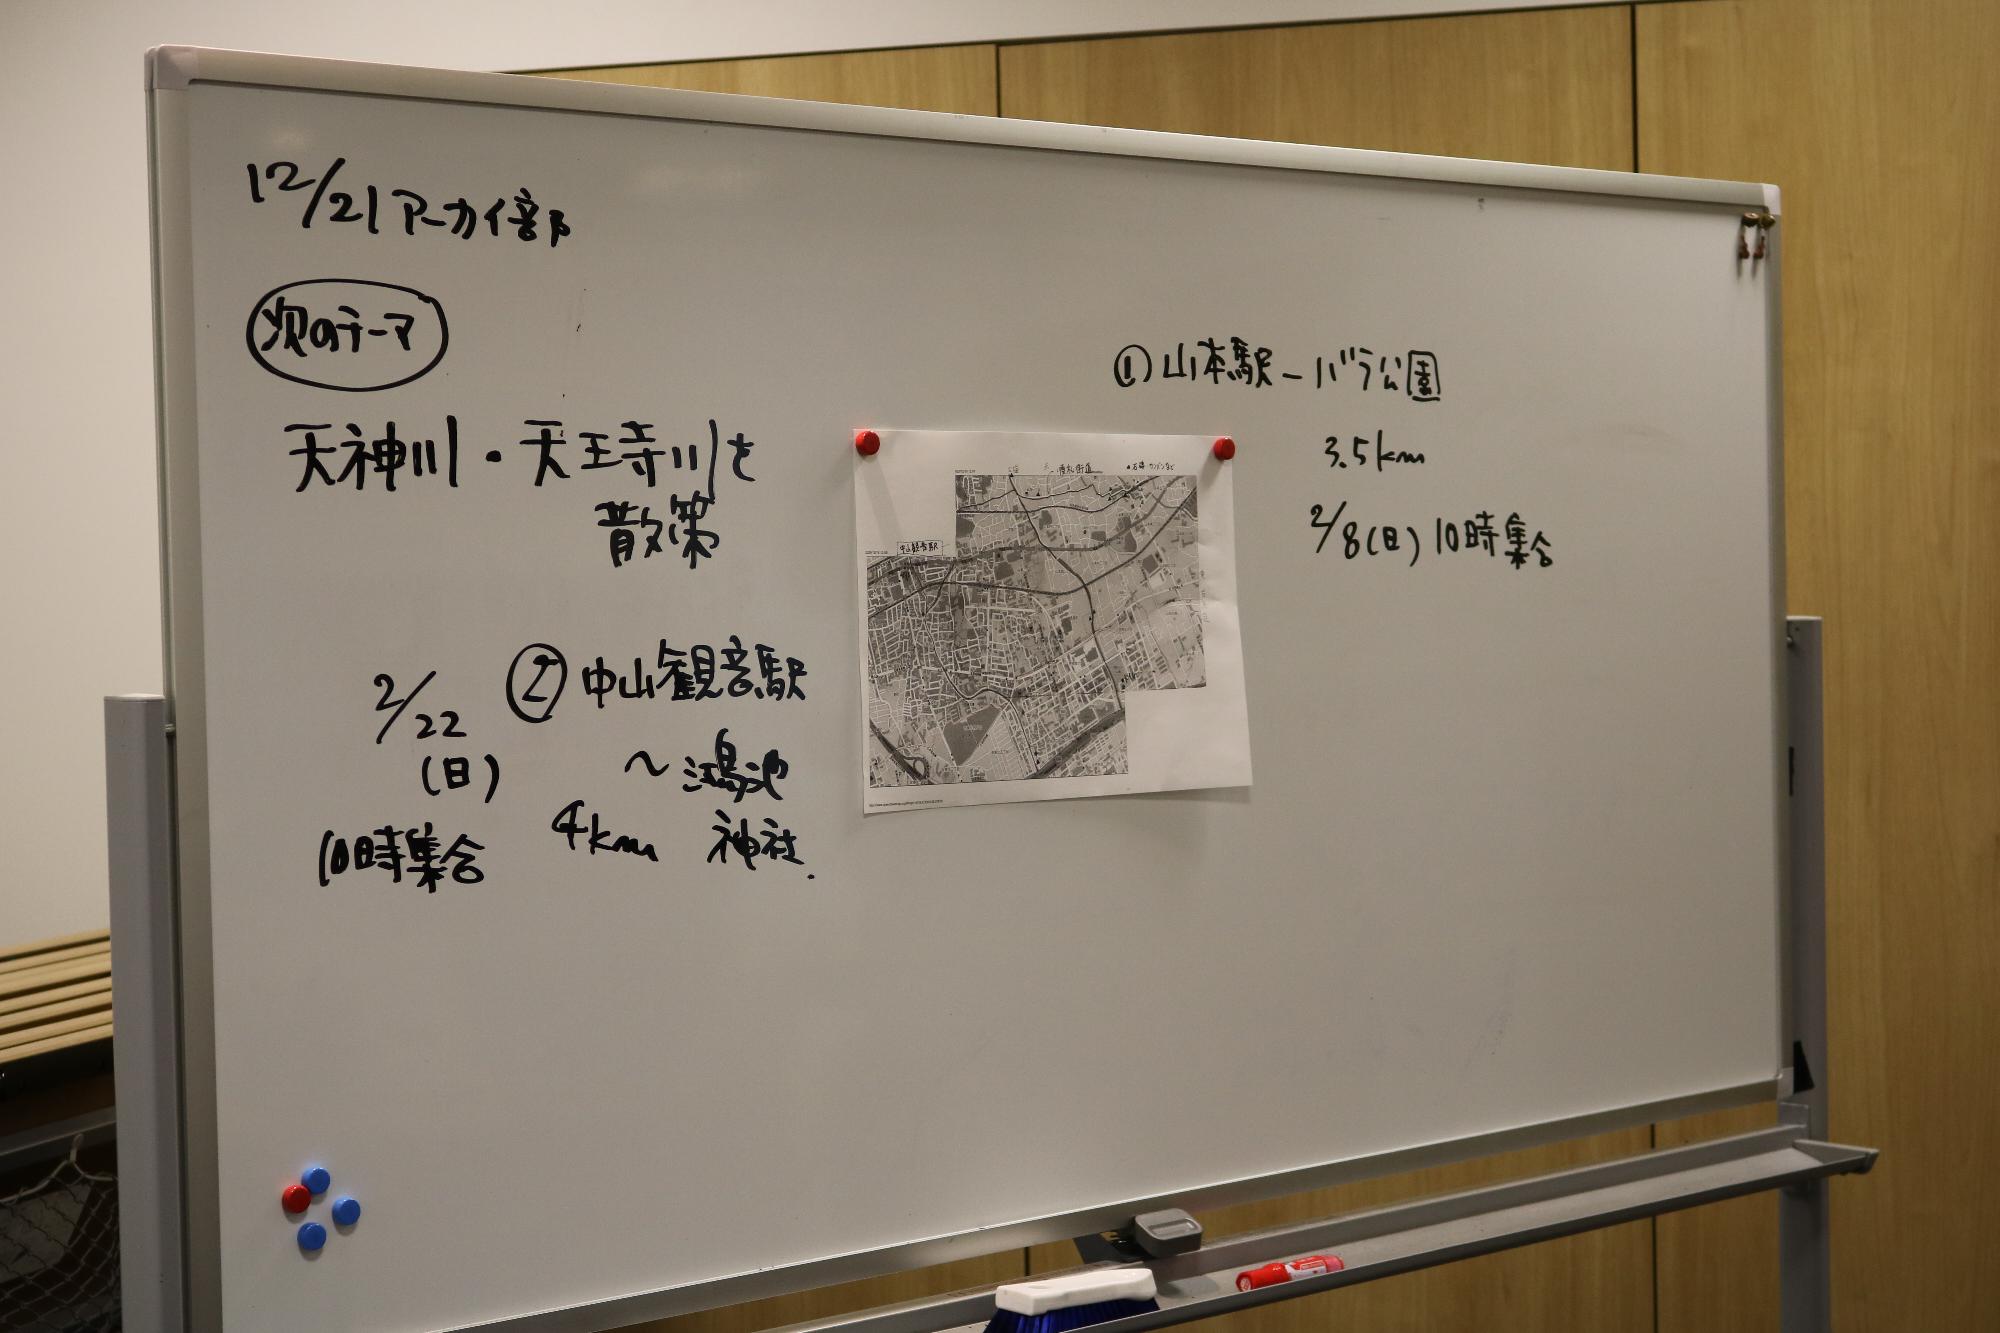 12/21 アーカイ部
次のテーマ
天神川・天王寺川を
散策
2/22
(日)
10時集合
② 中山観音駅
〜鴻池
4km 神社.
① 山本駅ーバラ公園
3.5km
2/8(日) 10時集合
中山観音駅